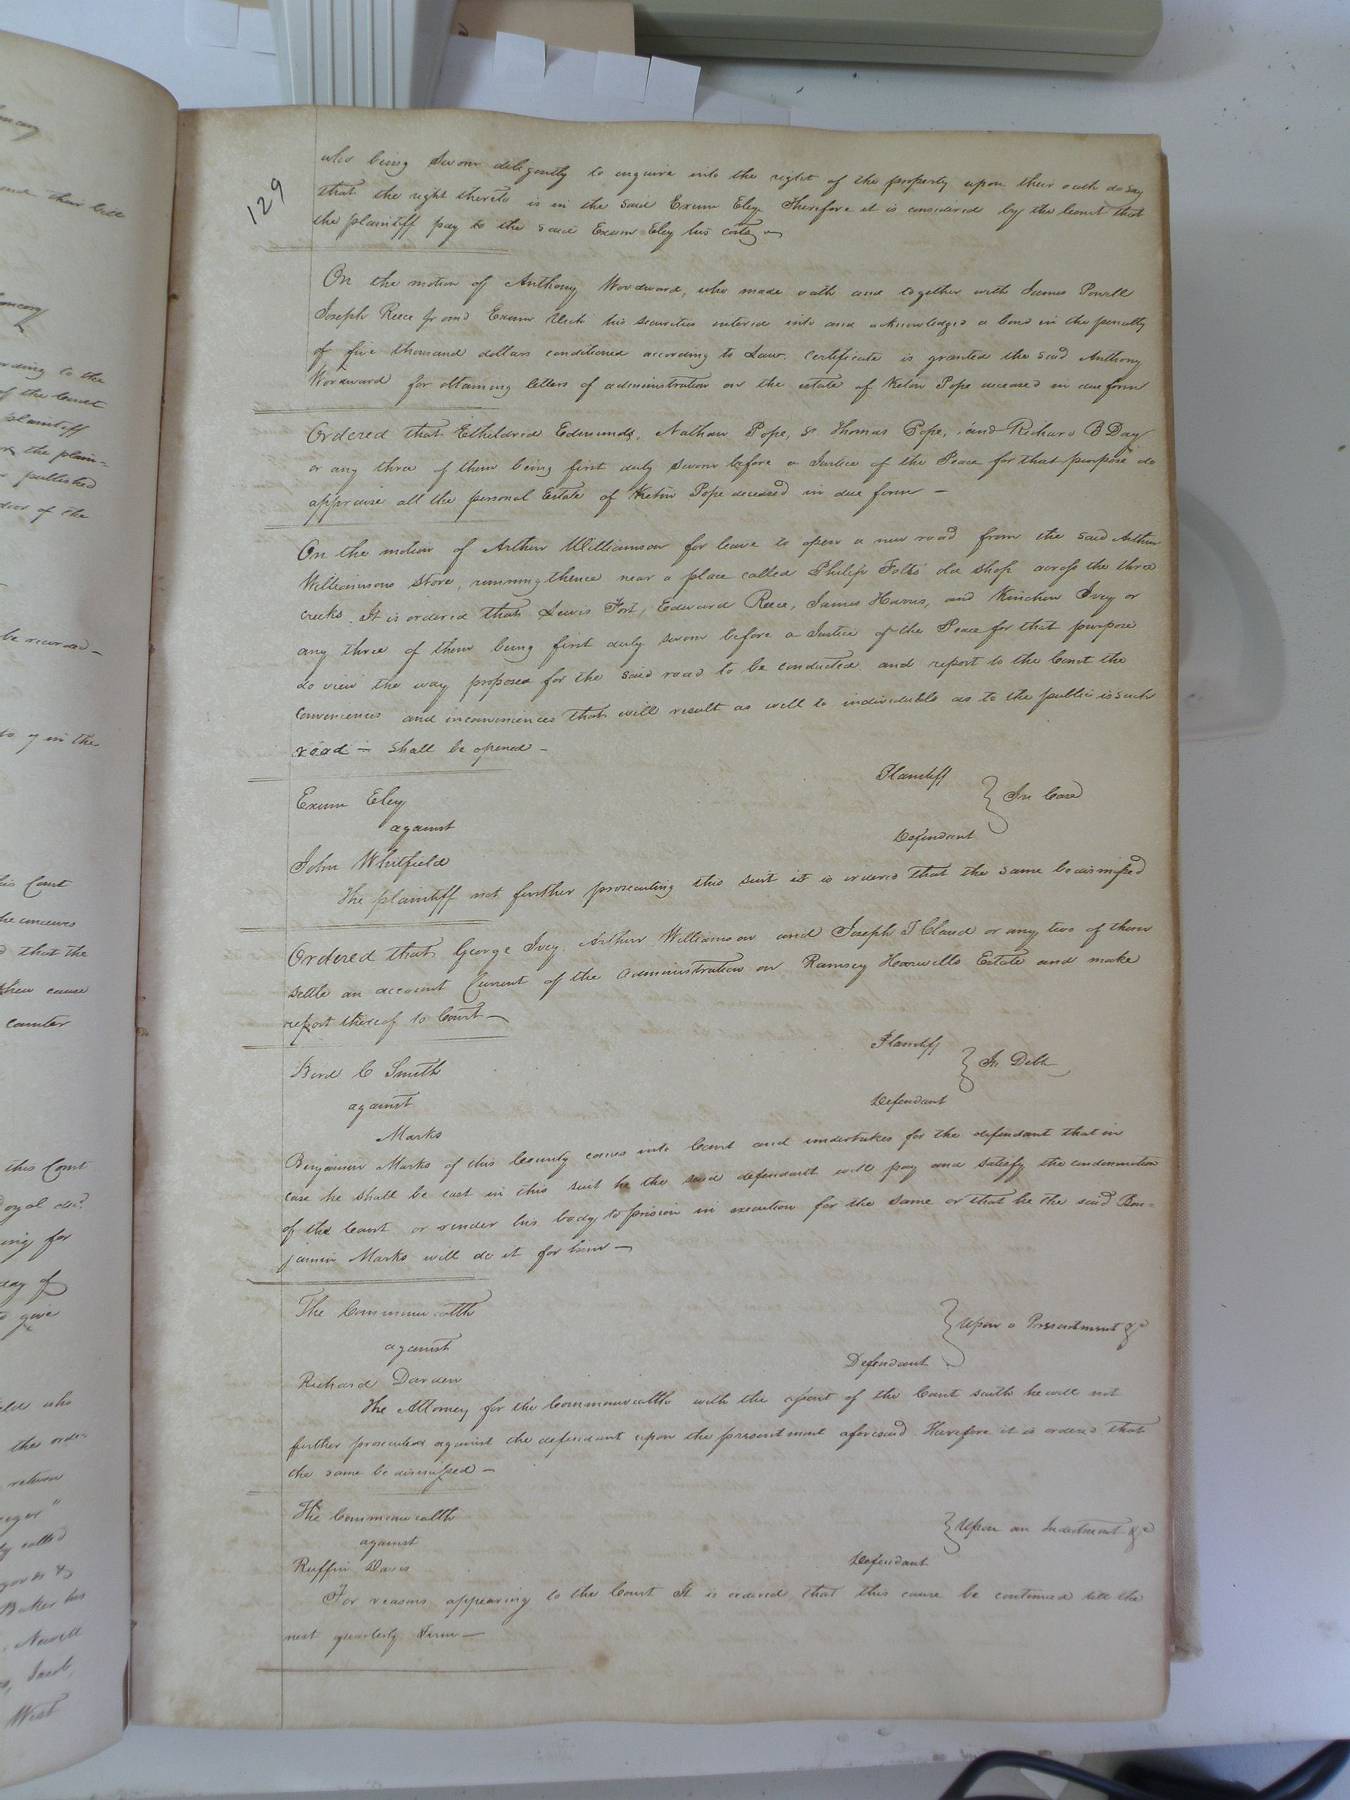 129
who being sworn deligently to enquire into the right of the property upon their oath do say
that the right thereto is in the said Exum Eley Therefore it is considered by the Court that
the plaintiff pay to the said Exum Eley his costs
On the motion of Anthony Woodward, who made oath and together with James Powell
Joseph Reece Jr and Exum his securities entered into and acknowledged a bond in the penalty
of five thousand dollars conditioned according to Law. Certificate is granted the said Anthony
Woodward for obtaining letters of administration on the estate of Pope deceased in due form
Ordered that Etheldred Edmunds, Nathan Pope, Thomas Pope, and Richard B Day
or any three of them being first duly sworn before a Justice of the Peace for that purpose do
appraise all the personal Estate of Pope deceased in due form —
On the motion of Arthur Williamson for leave to open a new road from the said Arthur
Williamsons Store, running thence near a place called Philip old shop across the three
creeks. It is ordered that Lewis Fort, Edward Reece, James Harris, and Kinchen Ivey or
any three of them being first duly sworn before a Justice of the Peace for that purpose
do view the way proposed for the said road to be conducted and report to the Court the
conveniences and inconveniences that will result as well to individuals as to the public is such
road — shall be opened —
Exum Eley Plaintiff
against } In Case
John Whitfield Defendant
The plaintiff not further prosecuting this suit it is ordered that the same be dismissed
Ordered that George Ivey Arthur Williamson and Joseph T Claud or any two of them
settle an account Current of the administration on Ramsey Estate and make
report thereof to Court —
C Smith Plaintiff
against } In Debt
Marks Defendant
Benjamin Marks of this County comes into Court and undertakes for the defendant that in
case he shall be cast in this suit he the said defendant will pay and satisfy the condemnation
of the Court or render his body to prison in execution for the same or that he the said Ben-
jamin Marks will do it for him —
The Commonwealth
against } Upon a Presentment &c
Richard Darden Defendant
The Attorney for the Commonwealth with the assent of the Court saith he will not
further prosecute against the defendant upon the presentment aforesaid Therefore it is ordered that
the same be dismissed —
The Commonwealth
against } Upon an Indictment &c
Ruffin Davis Defendant
For reasons appearing to the Court It is ordered that this cause be continued till the
next quarterly term —